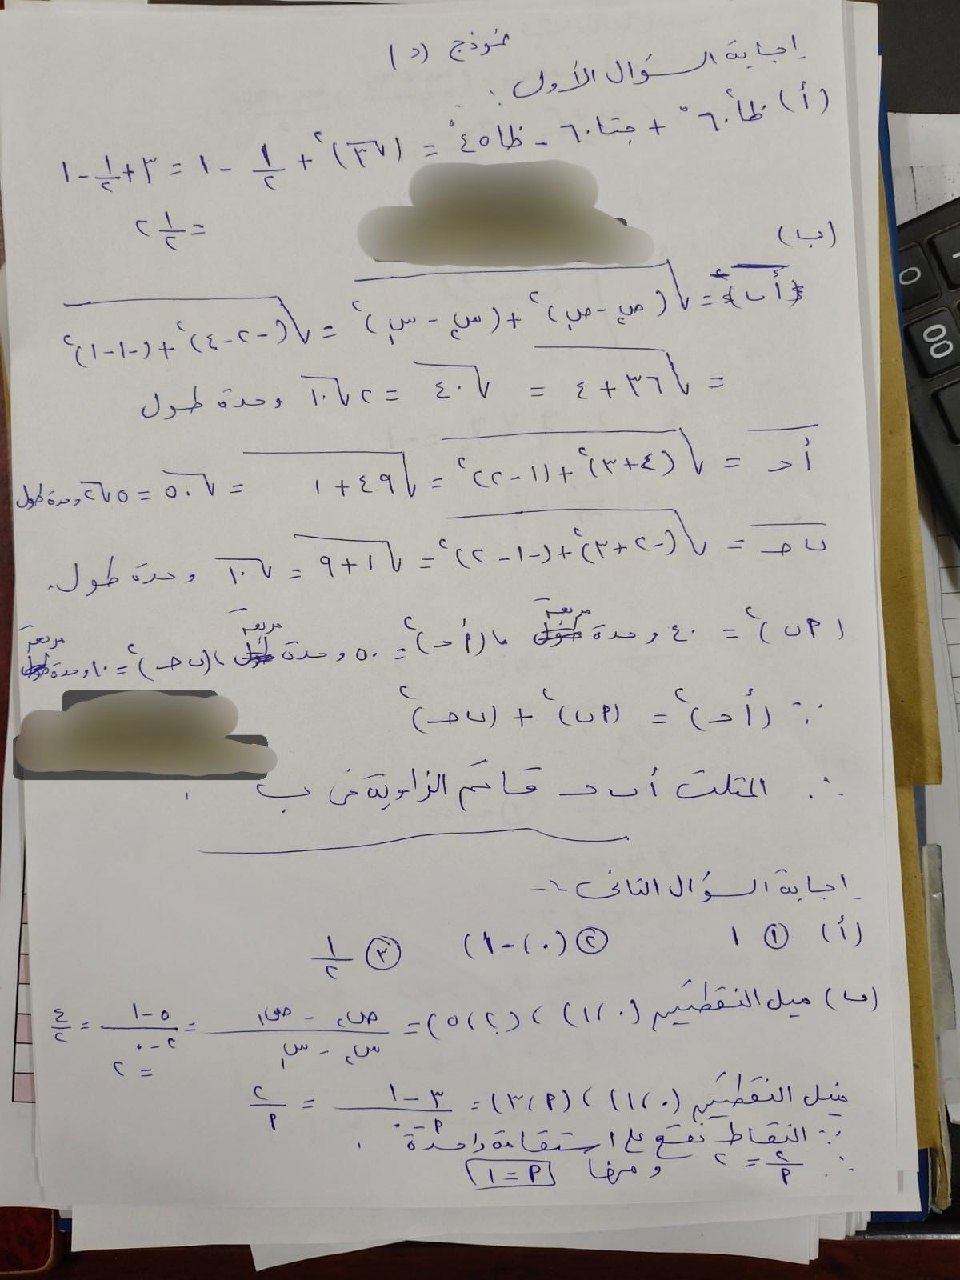 نموذج (د)
إجابة السؤال الأول :
(أ) ظا² ٦٠° + جتا ٦٠ - ظا ٤٥° = (√٣)² + ١/٢ - ١ = ٣ + ١/٢ - ١
= ٢ ١/٢
(ب)
أب = √(ص₂ - ص₁)² + (س₂ - س₁)² = √(-٢-٤)² + (-١-١)²
= √٣٦ + ٤ = √٤٠ = ٢√١٠ وحدة طول
أحـ = √(٤+٣)² + (١-٢)² = √٤٩ + ١ = √٥٠ = ٥√٢ وحدة طول
ب حـ = √(-٢+٣)² + (-١-٢)² = √١ + ٩ = √١٠ وحدة طول.
(أب)² = ٤٠ وحدة مربعة ، (أحـ)² = ٥٠ وحدة مربعة ، (ب حـ)² = ١٠ وحدة مربعة
∵ (أحـ)² = (أب)² + (ب حـ)²
∴ المثلث أ ب حـ قائم الزاوية في ب
إجابة السؤال الثاني :-
(أ) ① ١ ② (٠، -١) ③ ١/٢
(ب) ميل النقطتين (٠، ١) ، (٢، ٥) = ص₂ - ص₁ / س₂ - س₁ = ٥-١ / ٢-٠ = ٤/٢
= ٢
ميل النقطتين (٠، ١) ، (أ، ٣) = ٣ - ١ / أ - ٠ = ٢/أ
∵ النقاط تقع على استقامة واحدة .
∴ ٢/أ = ٢ ومنها أ = ١